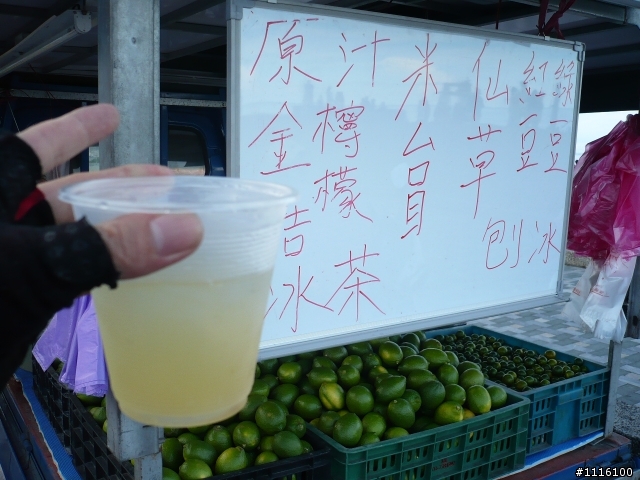 原汁
金吉
檸檬
冰茶
米台目
仙草
紅豆
綠豆
刨冰
#1116100